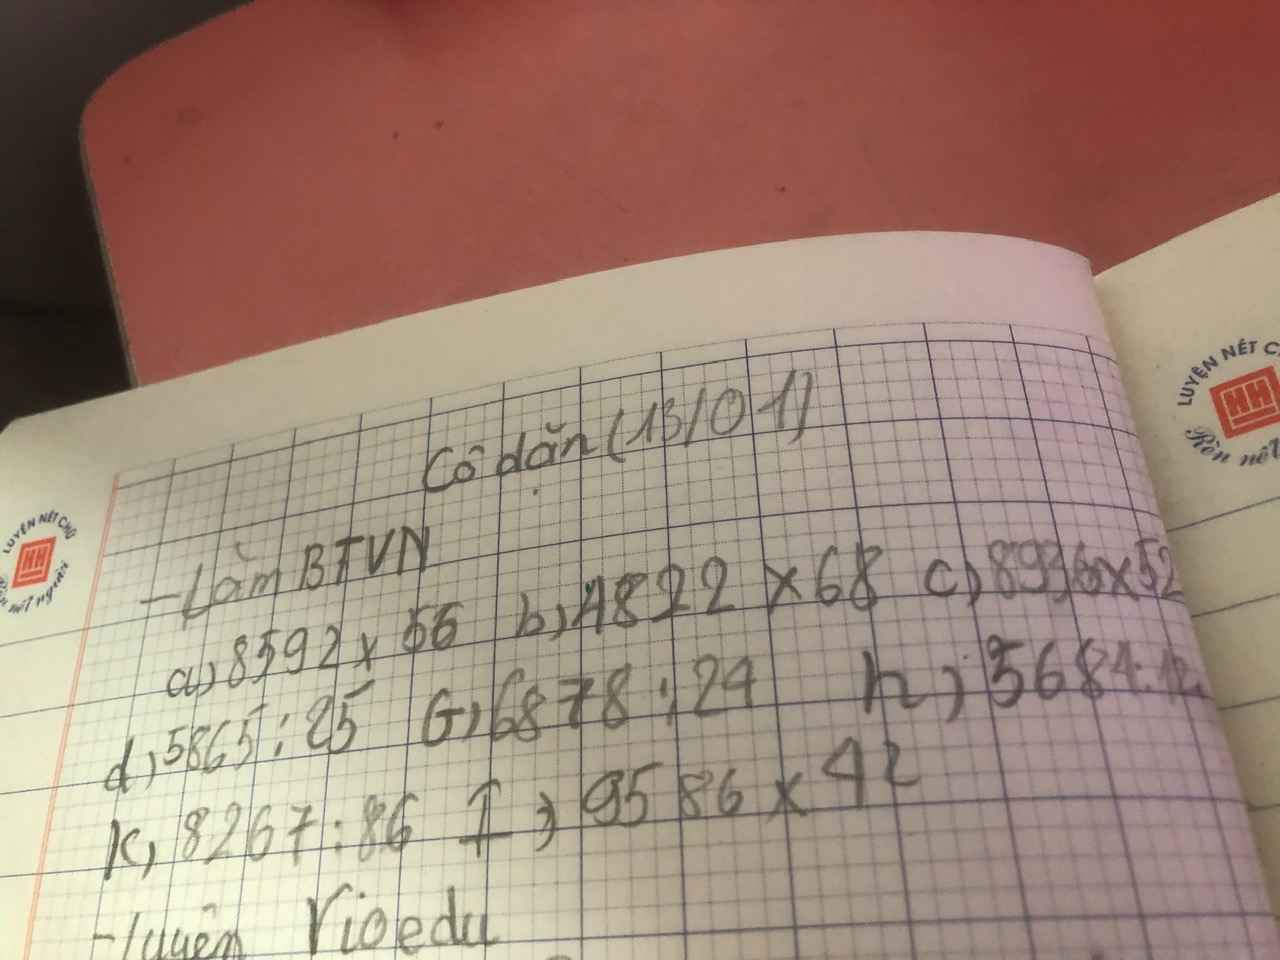 Cô dặn (13/01)
- Làm BTVN
a) 8592 x 56 b) 4822 x 68 c) 8936 x 52
d) 5865 : 25 G) 6878 : 24 h) 5684 : 12
k) 8267 : 86 I) 9586 x 42
- luyện Vioedu
LUYỆN NÉT CHỮ
HH
Rèn nết người
LUYỆN NÉT C
HH
Rèn nết